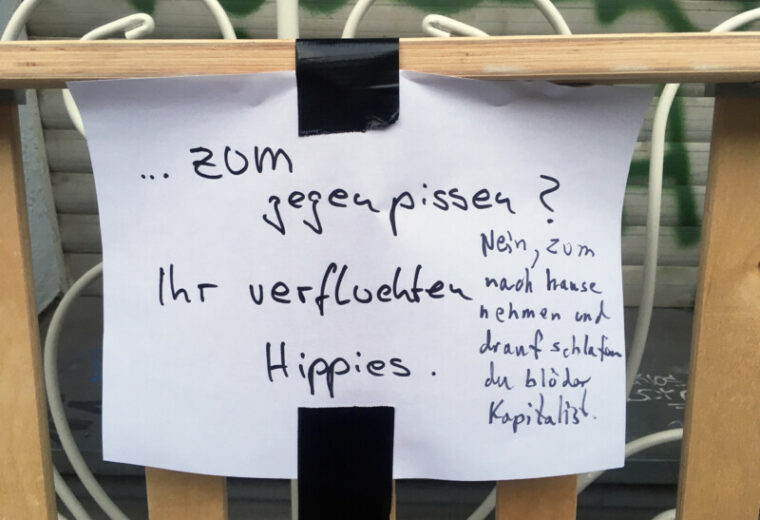 ... zum
gegenpissen?
Ihr verfluchten
Hippies.
Nein, zum
nach hause
nehmen und
drauf schlafen
du blöder
Kapitalist.